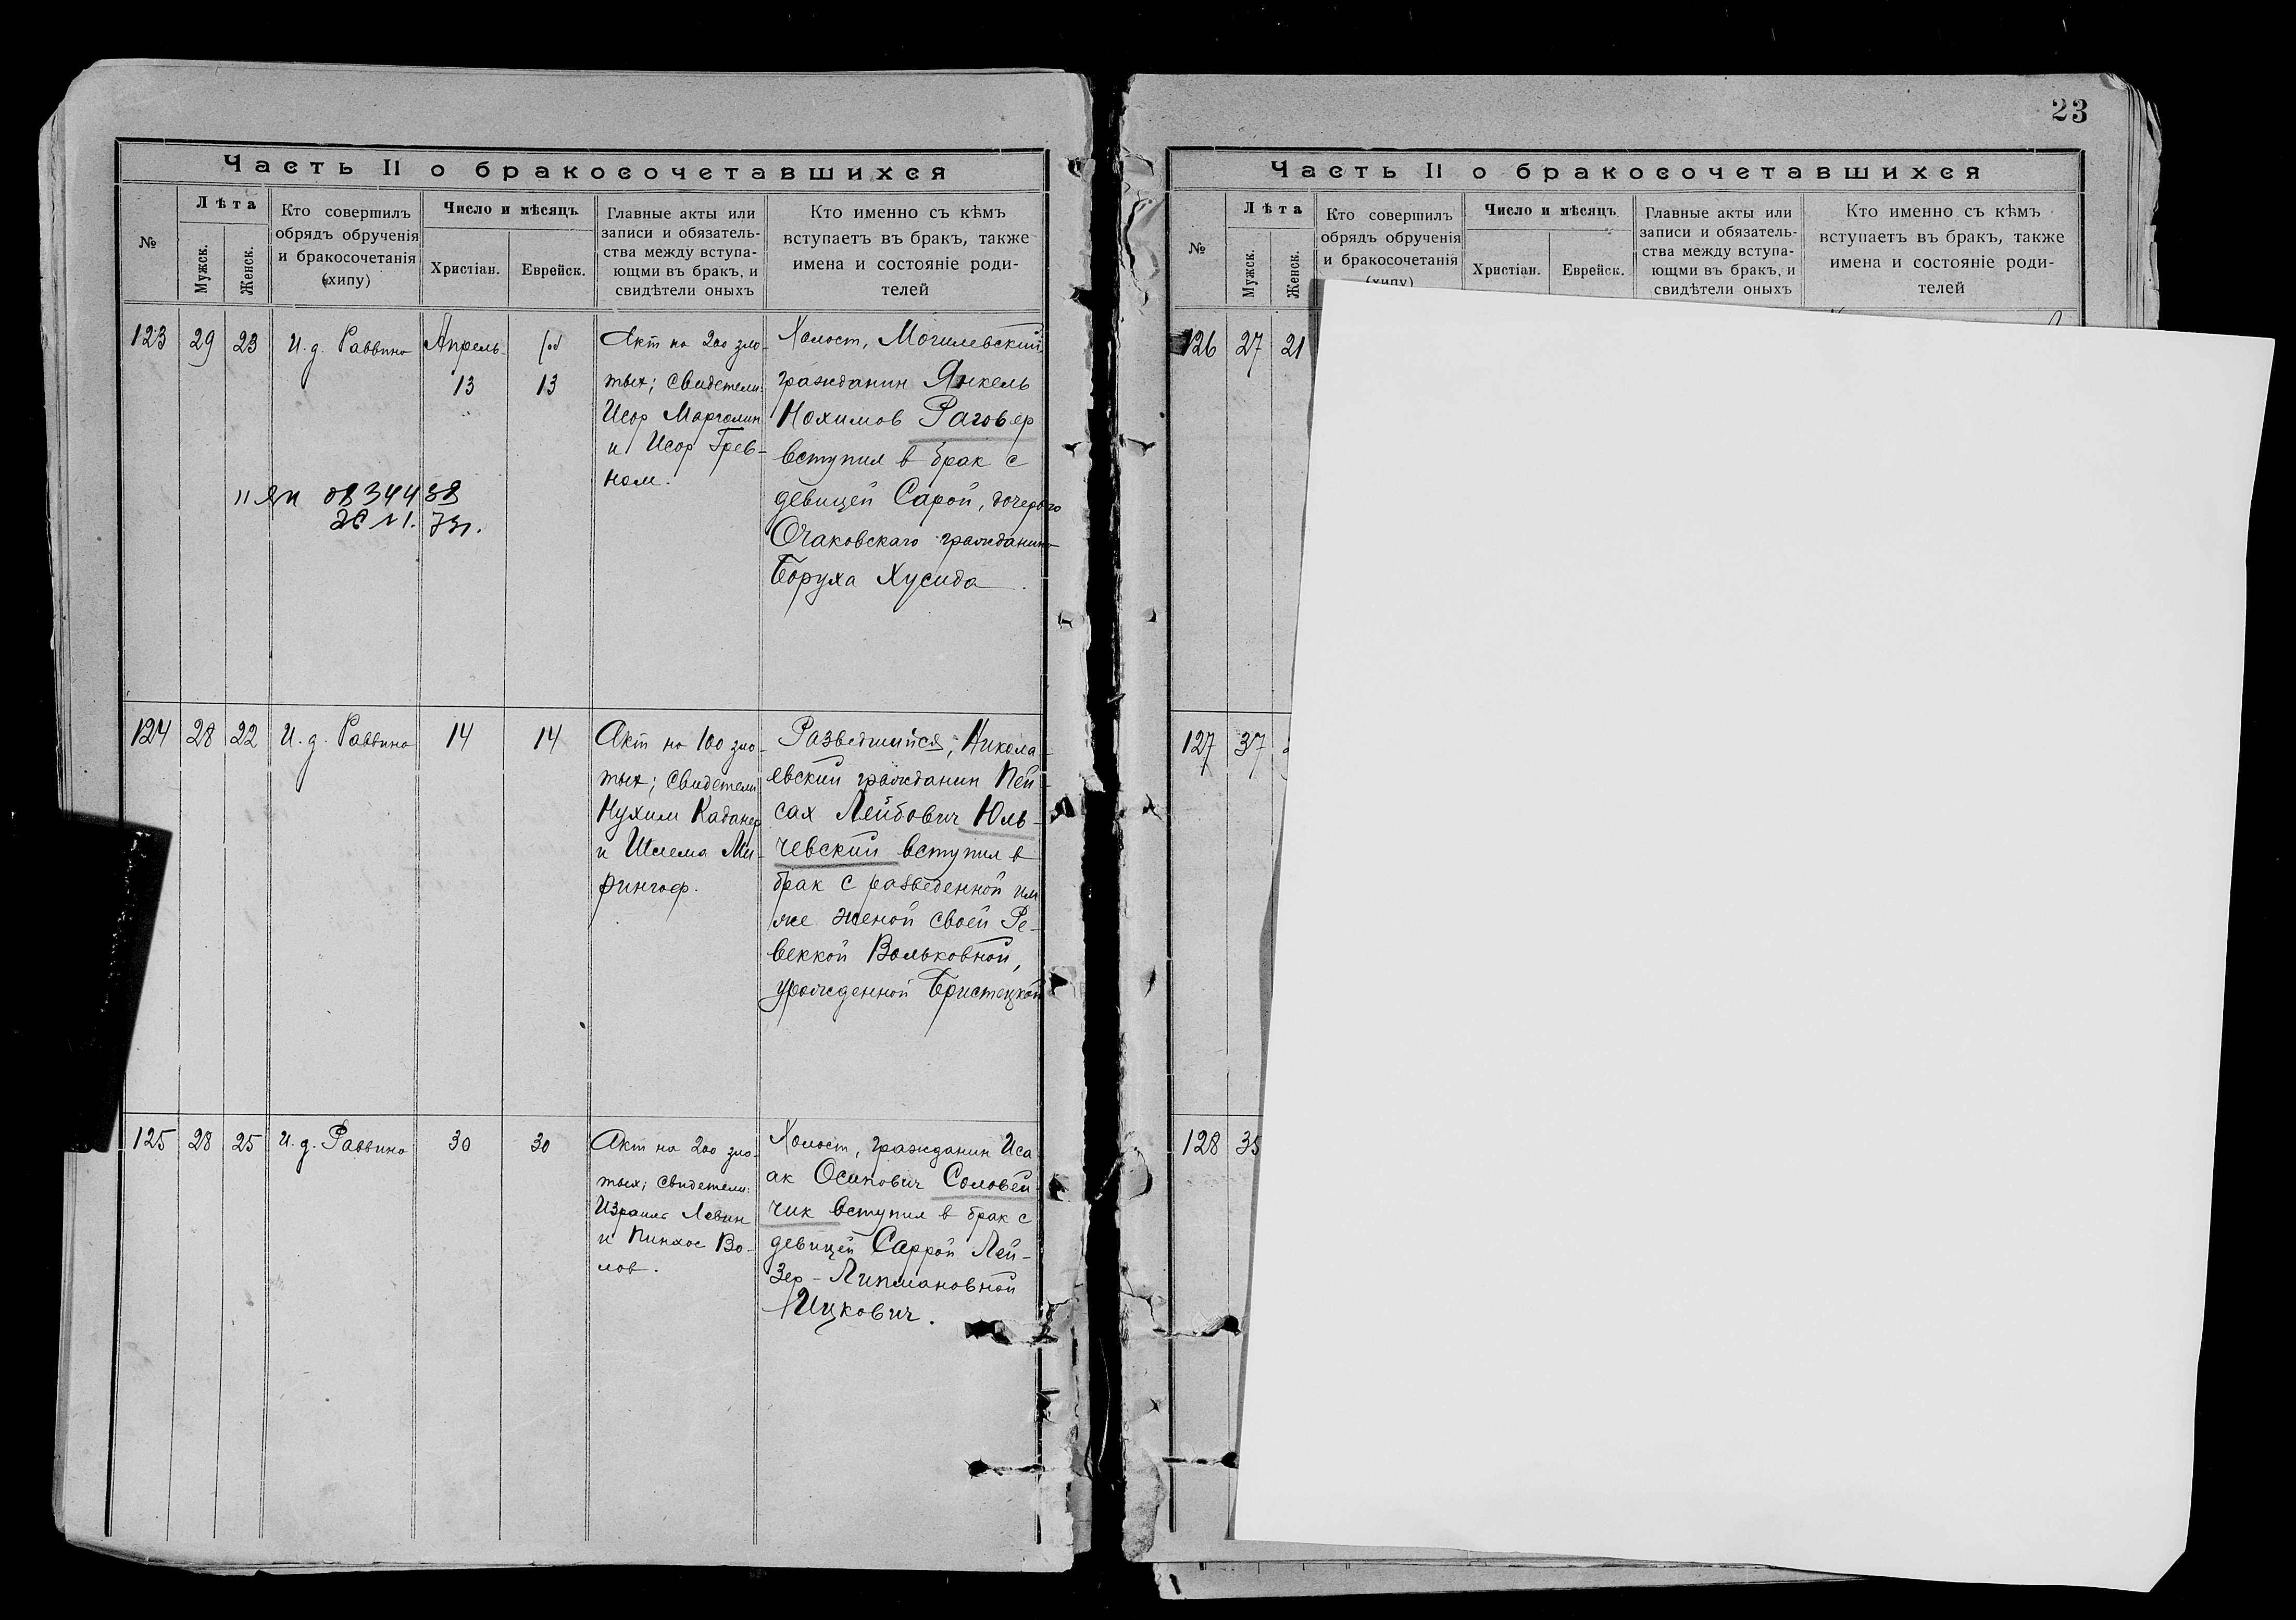 23
Часть II о бракосочетавшихся
№
Лѣта
Мужск.
Женск.
Кто совершилъ
обрядъ обрученія
и бракосочетанія
(хипу)
Число и мѣсяцъ
Христіан.
Еврейск.
Главные акты или
записи и обязатель-
ства между вступа-
ющими въ бракъ, и
свидѣтели оныхъ
Кто именно съ кѣмъ
вступаетъ въ бракъ, также
имена и состояніе роди-
телей
123
29
23
И. д. Раввина
Апрель
13
13
Акт на 200 зло-
тых; Свидетели:
Исор Марголин
и Исор Грев-
ном.
Холост, Могилевский
гражданин Янкель
Нохимов Раговер
вступил в брак с
девицей Сарой, дочерью
Очаковскаго гражданина
Боруха Хусида.
083444 88
124
28
22
И. д. Раввина
14
14
Акт на 100 зло-
тых; Свидетели
Нухим Каданер
и Шлема Ми-
рингоф.
Разведшийся, Никола-
евский гражданин Пей-
сах Лейбович Юль-
чевский вступил в
брак с разведенной им
же женой своей Ре-
веккой Вольковной,
урожденной Бристецкой
125
28
25
И. д. Раввина
30
30
Акт на 200 зло-
тых; Свидетели:
Израиль Левин
и Пинхос Во-
лов.
Холост, гражданин Иса
ак Осипович Соловей
чик вступил в брак с
девицей Саррой Лей-
зер-Липмановной
Ицкович.
Часть II о бракосочетавшихся
№
Лѣта
Мужск.
Женск.
Кто совершилъ
обрядъ обрученія
и бракосочетанія
(хипу)
Число и мѣсяцъ
Христіан.
Еврейск.
Главные акты или
записи и обязатель-
ства между вступа-
ющими въ бракъ, и
свидѣтели оныхъ
Кто именно съ кѣмъ
вступаетъ въ бракъ, также
имена и состояніе роди-
телей
126
27
21
127
37
128
35